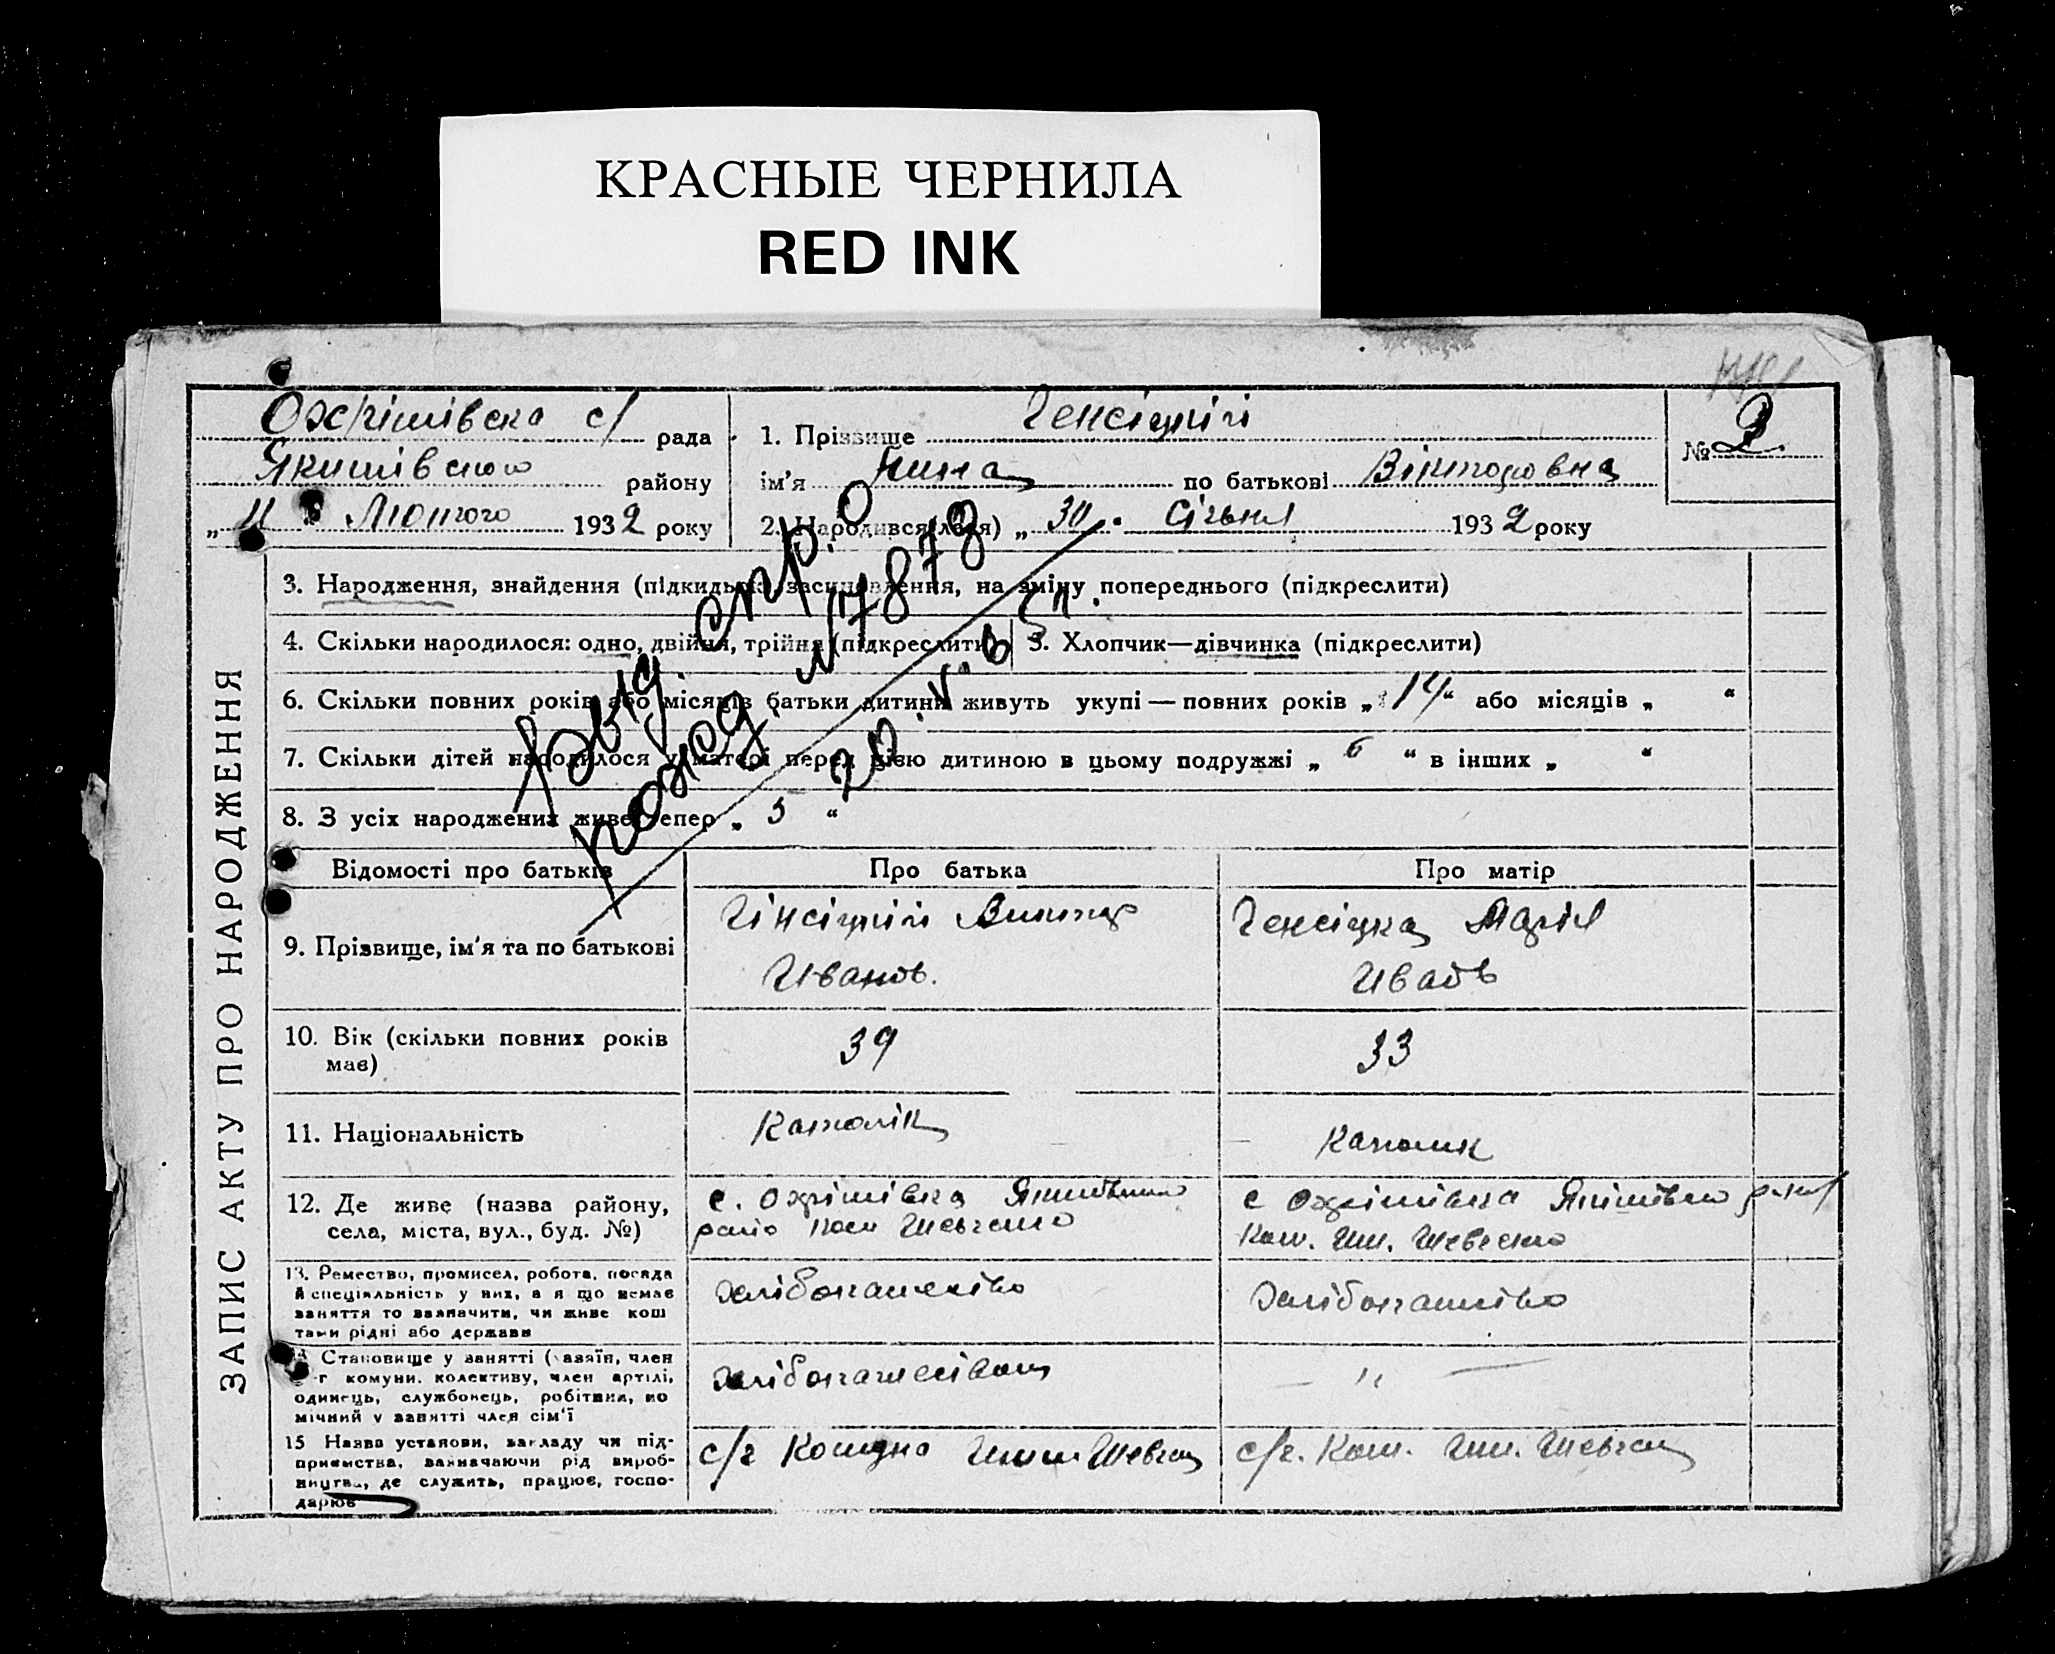 КРАСНЫЕ ЧЕРНИЛА
RED INK
Охрімівска с/ рада
Якимівского району
„11“ Лютого 1932 року
1. Прізвище Генсіцкій
ім'я Нина по батькові Вікторовна
№ 2.
2. Народився(лася) „30“ Січня 1932 року
ЗАПИС АКТУ ПРО НАРОДЖЕННЯ
Выд. спр. о
рожд. №7878
20.V.85 г.
3. Народження, знайдення (підкидька), засиновлення, на зміну попереднього (підкреслити)
4. Скільки народилося: одно, двійня, трійня (підкреслити) 5. Хлопчик—дівчинка (підкреслити)
6. Скільки повних років або місяців батьки дитини живуть укупі — повних років „14“ або місяців „ “
7. Скільки дітей народилося у матері перед цією дитиною в цьому подружжі „6“ в інших „ “
8. З усіх народжених живе тепер „5“
Відомості про батьків Про батька Про матір
9. Прізвище, ім'я та по батькові
Гінсіцкій Виктор
Иванов.
Генсіцка Марія
Иванов
10. Вік (скільки повних років має)
39
33
11. Національність
Католік
Католик
12. Де живе (назва району,
села, міста, вул., буд. №)
с. Охрімівка Якимівского
раио Ком Шевченко
с Охрімівка Якімівско району
Ком. Им. Шевченко
13. Ремество, промисел, робота, посада
й спеціяльність у них, а я що немає
заняття то зазначити, чи живе кош
тами рідні або держави
Хлібопашество
Хлібопашство
14 Становище у занятті (хазяїн, член
с-г комуни, колективу, член артілі,
одинець, службонець, робітник, по
мічний у занятті член сім'ї
— „ —
15 Назва установи, закладу чи під-
приємства, зазначаючи рід вироб-
ництва, де служить, працює, госпо-
дарює
с/г Комуна Имен. Шевчен
с/г. Ком. Им. Шевчен